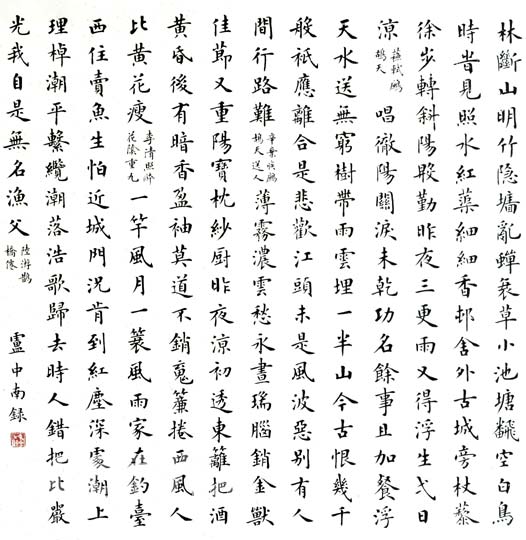 林斷山明竹隐墻亂蟬衰草小池塘飜空白鳥
時旹見照水紅蕖細細香邨舍外古城旁杖藜
徐步轉斜陽殷勤昨夜三更雨又得浮生弌日
涼 蘇軾鷓鴣天 唱徹陽關淚未乾功名餘事且加餐浮
天水送無窮樹帶雨雲埋一半山今古恨幾千
般祇應離合是悲歡江頭未是風波惡別有人
間行路難 辛棄疾鷓鴣天送人 薄霧濃雲愁永晝瑞腦銷金獸
佳節又重陽寶枕紗厨昨夜涼初透東籬把酒
黃昏後有暗香盈袖莫道不銷魂簾捲西風人
比黃花瘦 李清照醉花陰重九 一竿風月一蓑風雨家在釣臺
西住賣魚生怕近城門況肯到紅塵深處潮上
理棹潮平繫纜潮落浩歌歸去時人錯把比嚴
光我自是無名漁父 陸游鵲橋僊 盧中南録